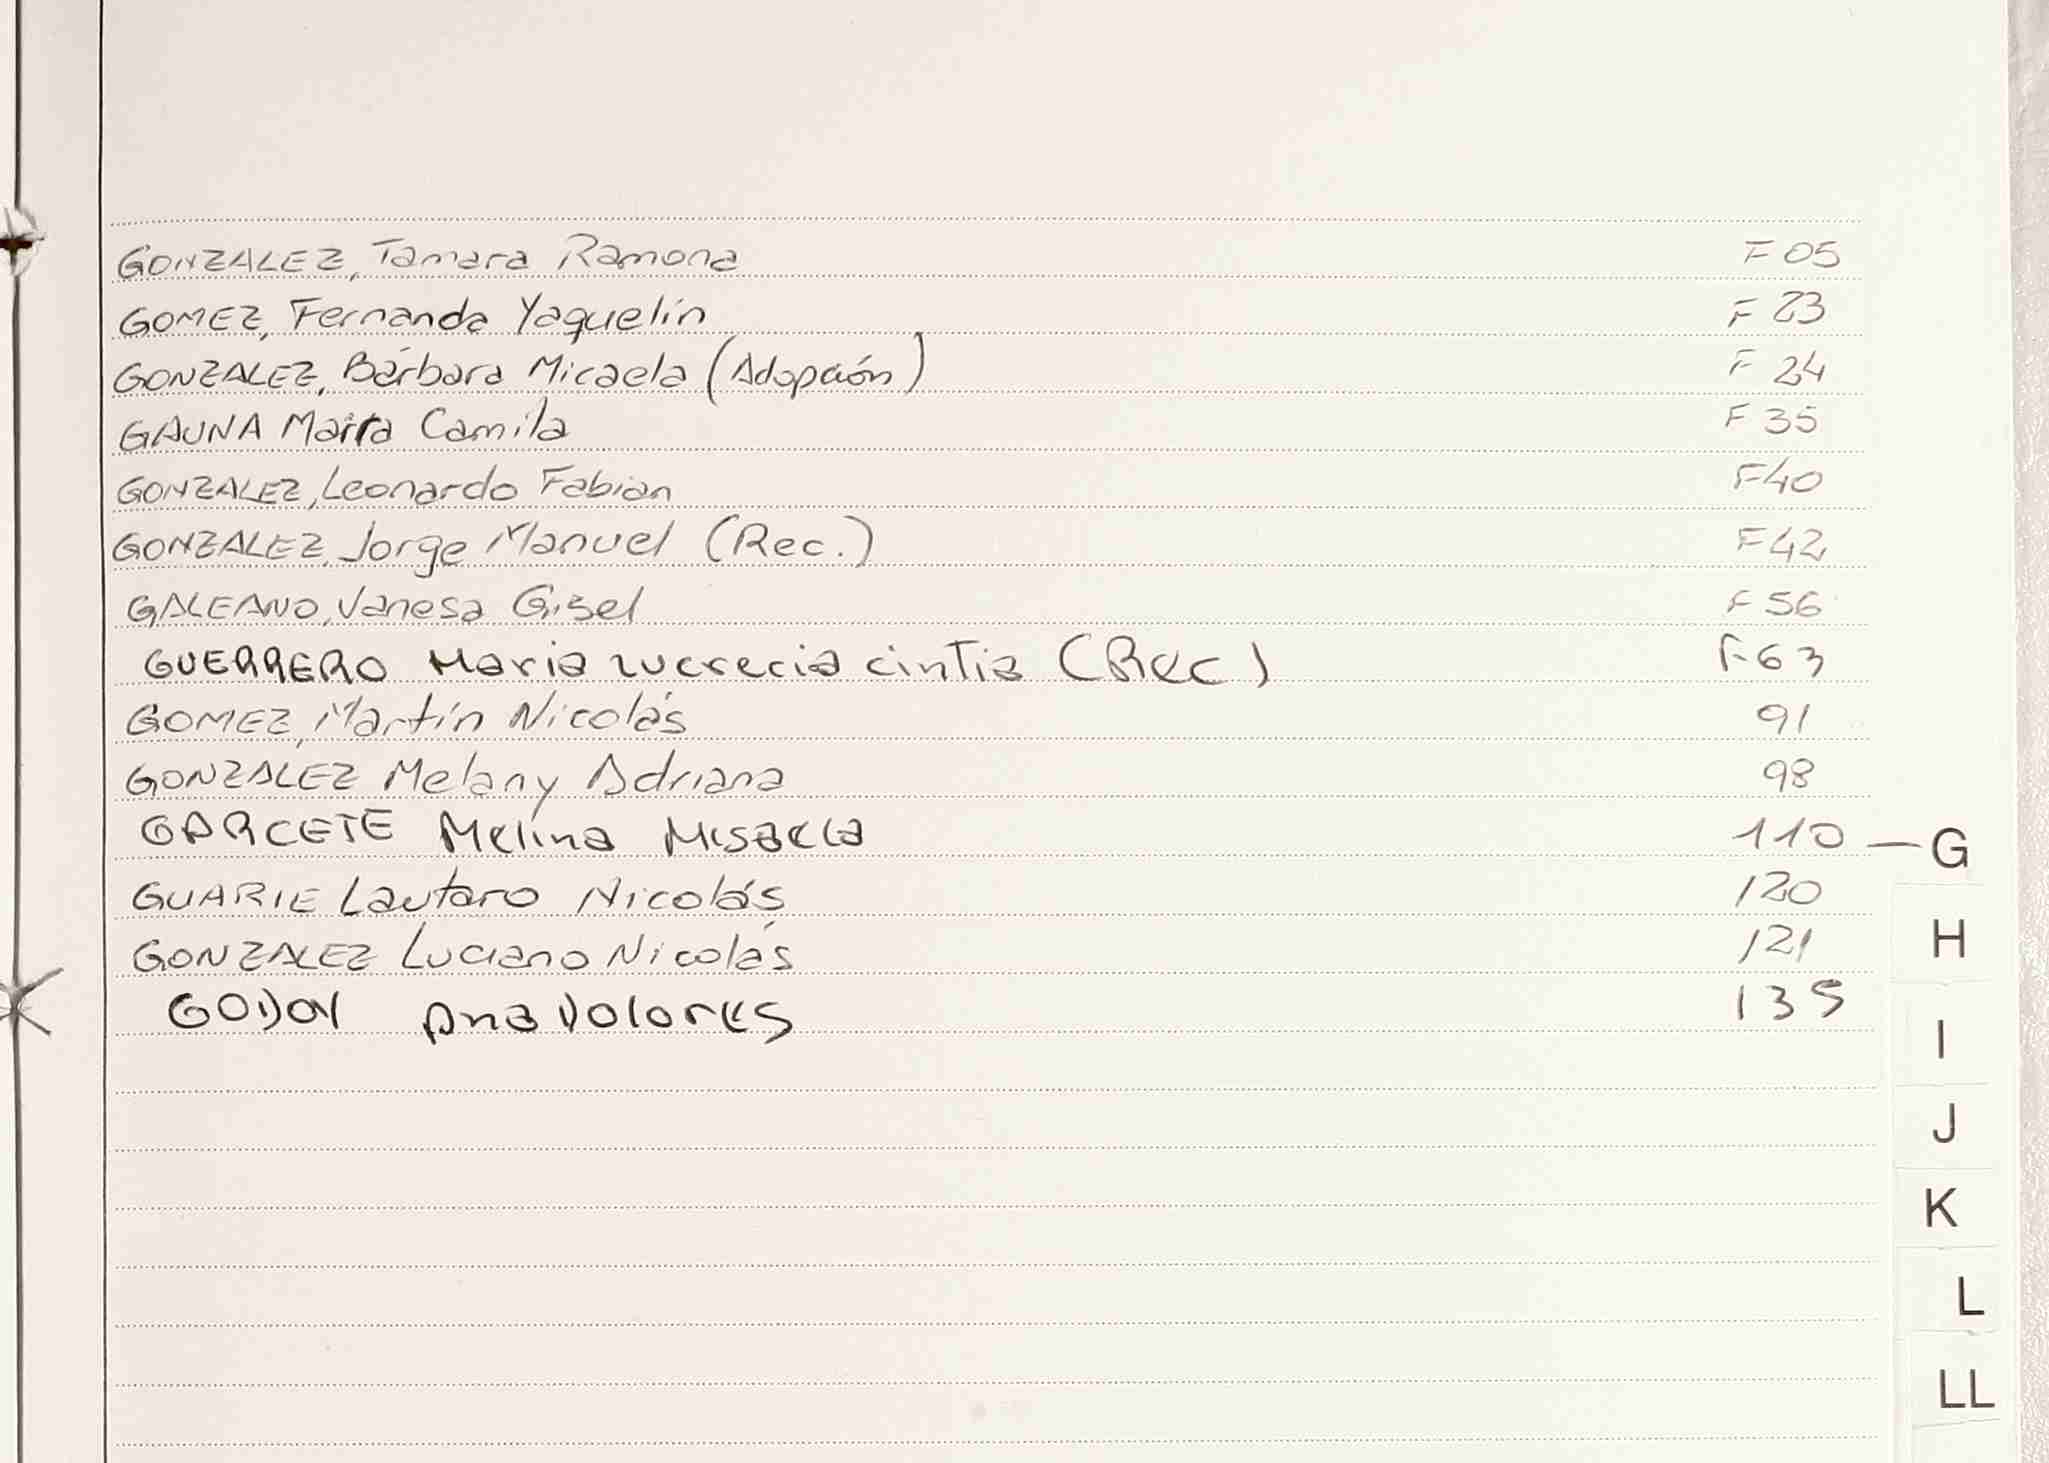 GONZALEZ, Tamara Ramona F 05
GOMEZ, Fernanda Yaquelín F 23
GONZALEZ, Bárbara Micaela (Adopción) F 24
GAUNA Maira Camila F 35
GONZALEZ, Leonardo Fabian F40
GONZALEZ, Jorge Manuel (Rec.) F42
GALEANO, Vanesa Gisel F 56
GUERRERO Maria Lucrecia cintia (Rec) F-63
GOMEZ, Martín Nicolás 91
GONZALEZ Melany Adriana 98
GARCETE Melina Misaela 110 — G
GUARIE Lautaro Nicolás 120
GONZALEZ Luciano Nicolás 121
H
GODOY Ana Dolores 135
I
J
K
L
LL